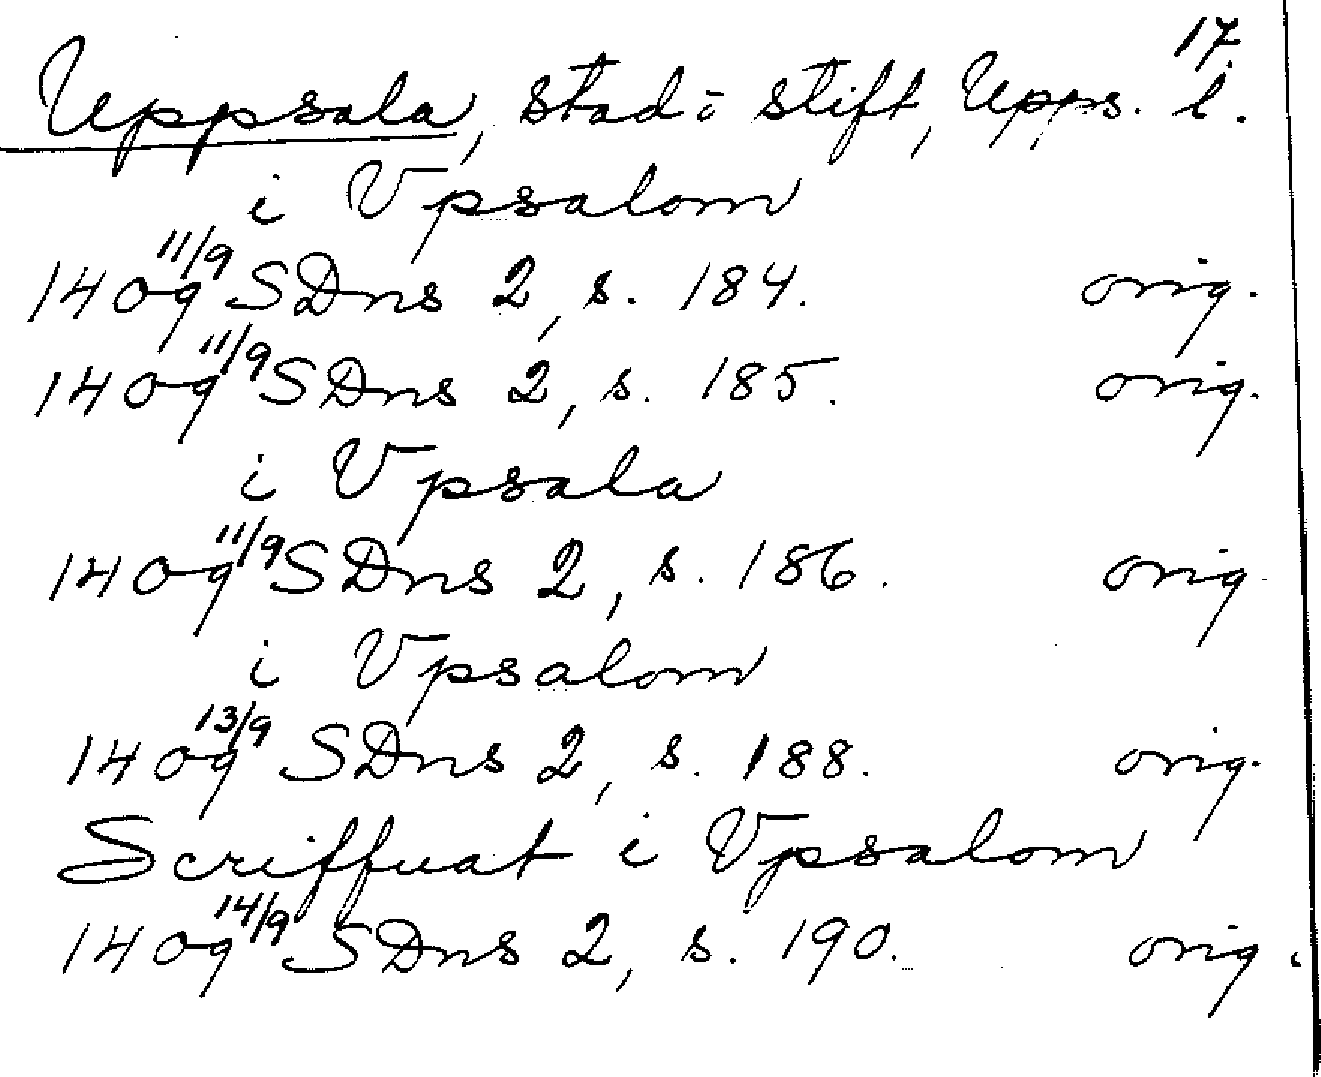 17
Uppsala, stad o stift, Upps. l.
i Vpsalom
1409 11/9 SDns 2, s. 184. orig.
1409 11/9 SDns 2, s. 185. orig.
i Vpsala
1409 11/9 SDns 2, s. 186. orig.
i Vpsalom
1409 13/9 SDns 2, s. 188. orig.
Scriffuat i Vpsalom
1409 14/9 SDns 2, s. 190. orig.